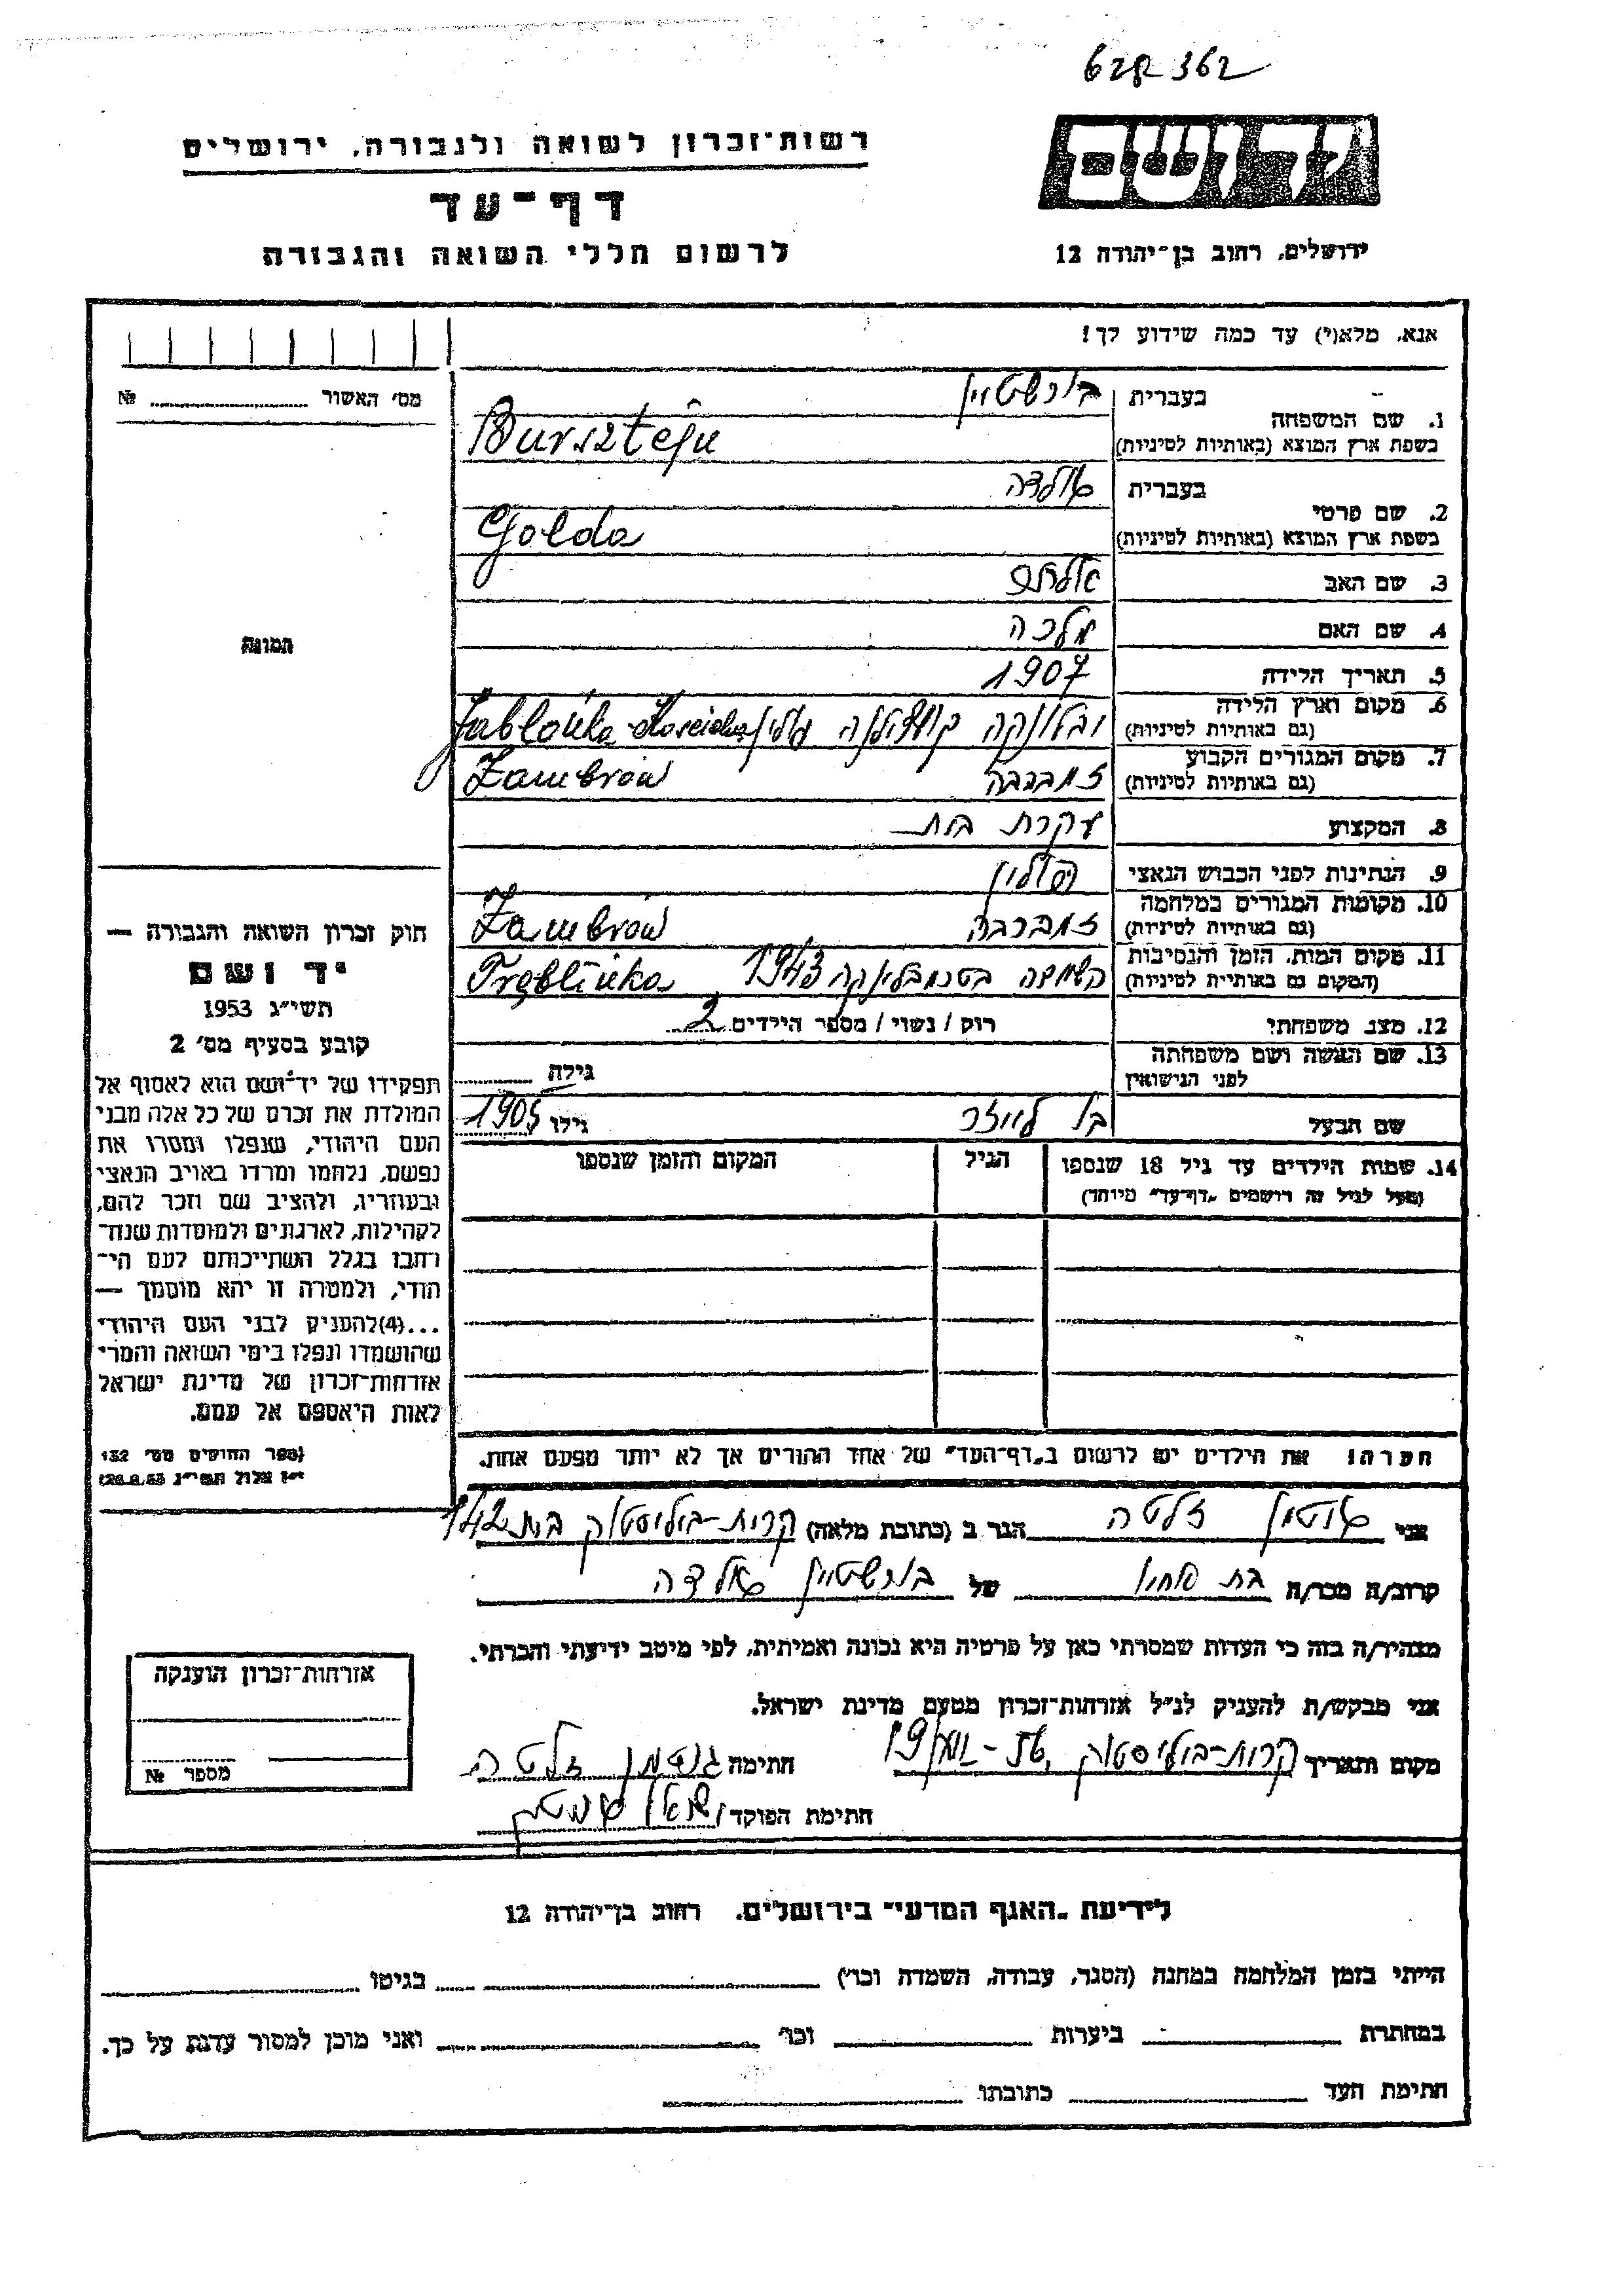 רשות־זכרון לשואה ולגבורה, ירושלים
דף־עד
לרשום חללי השואה והגבורה
יד ושם
ירושלים, רחוב בן־יהודה 12
אנא, מלא(י) עד כמה שידוע לך!
מס' האשור № 
תמונה
1. שם המשפחה בעברית בורשטיין
בשפת ארץ המוצא (באותיות לטיניות) Bursztejn
2. שם פרטי בעברית גולדה
בשפת ארץ המוצא (באותיות לטיניות) Golda
3. שם האב
4. שם האם מלכה
5. תאריך הלידה 1907
6. מקום וארץ הלידה
(גם באותיות לטיניות) פולין Jabłonka
7. מקום המגורים הקבוע
(גם באותיות לטיניות) Zambrów
8. המקצוע עקרת בית
9. הנתינות לפני הכבוש הנאצי פולין
10. מקומות המגורים במלחמה
(גם באותיות לטיניות) Zambrów
11. מקום המות, הזמן והנסיבות
(המקום גם באותיות לטיניות) 1943 Treblinka
12. מצב משפחתי רוק / נשוי / מספר הילדים 2
13. שם האשה ושם משפחתה
לפני הנישואין גילה
שם הבעל גילו 1905
14. שמות הילדים עד גיל 18 שנספו הגיל המקום והזמן שנספו
(מעל לגיל זה רושמים "דף־עד" מיוחד)
הערה: את הילדים יש לרשום ב"דף־העד" של אחד ההורים אך לא יותר מפעם אחת.
חוק זכרון השואה והגבורה —
יד ושם
תשי"ג 1953
קובע בסעיף מס' 2
תפקידו של יד־ושם הוא לאסוף אל
המולדת את זכרם של כל אלה מבני
העם היהודי, שנפלו ומסרו את
נפשם, נלחמו ומרדו באויב הנאצי
ובעוזריו, ולהציב שם וזכר להם,
לקהילות, לארגונים ולמוסדות שנח־
רבו בגלל השתייכותם לעם הי־
הודי, ולמטרה זו יהא מוסמך —
...(4)להעניק לבני העם היהודי
שהושמדו ונפלו בימי השואה והמרי
אזרחות־זכרון של מדינת ישראל
לאות היאספם אל עמם.
(ספר החוקים מס' 132
י"ז אלול תשי"ג 28.8.53)
אני גוטמן זלטה הגר ב (כתובת מלאה) קרית-ביליסטוק בית 142
קרוב/ה מכר/ה בת של בורשטיין גולדה
מצהיר/ה בזה כי העדות שמסרתי כאן על פרטיה היא נכונה ואמיתית, לפי מיטב ידיעתי והכרתי.
אני מבקש/ת להעניק לנ"ל אזרחות־זכרון מטעם מדינת ישראל.
מקום ותאריך קרית-ביליסטוק חתימה גוטמן זלטה
חתימת הפוקד
אזרחות־זכרון הוענקה
מספר №
לידיעת "האגף המדעי" בירושלים, רחוב בן־יהודה 12
הייתי בזמן המלחמה במחנה (הסגר, עבודה, השמדה וכו') בגיטו
במחתרת ביערות וכו' ואני מוכן למסור עדות על כך.
חתימת העד כתובתו